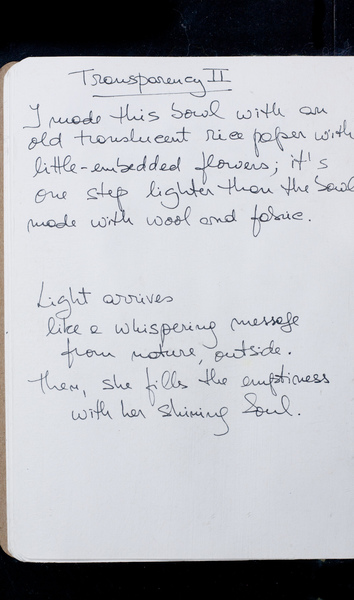 Transparency II
I made this bowl with an
old translucent rice paper with
little-embedded flowers; it's
one step lighter than the bowl
made with wool and fabric.
Light arrives
like a whispering message
from nature, outside.
Then, she fills the emptiness
with her shining Soul.